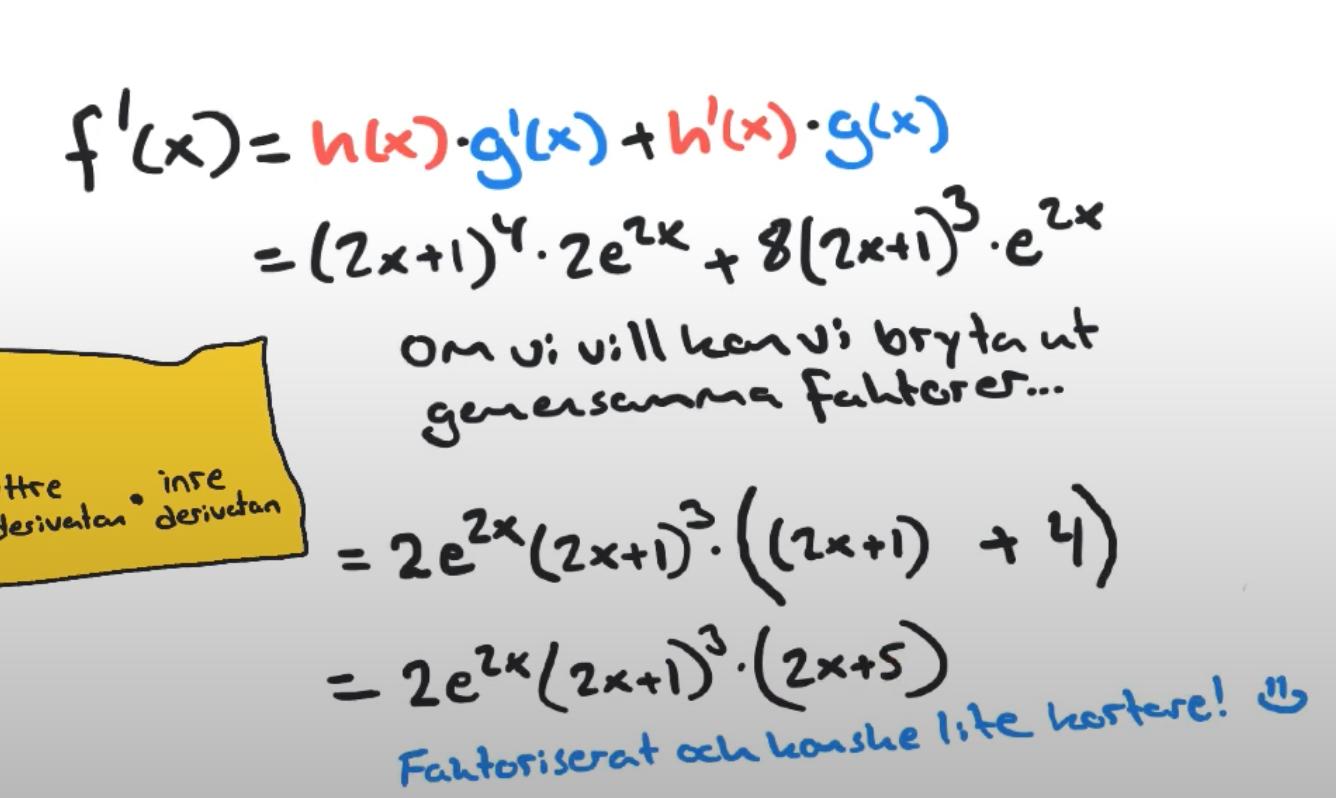 f'(x) = h(x)·g'(x) + h'(x)·g(x)
= (2x+1)⁴·2e²ˣ + 8(2x+1)³·e²ˣ
Om vi vill kan vi bryta ut
gemensamma faktorer...
ttre
derivatan · inre
derivatan
= 2e²ˣ(2x+1)³·((2x+1) + 4)
= 2e²ˣ(2x+1)³·(2x+5)
Faktoriserat och kanske lite kortare!